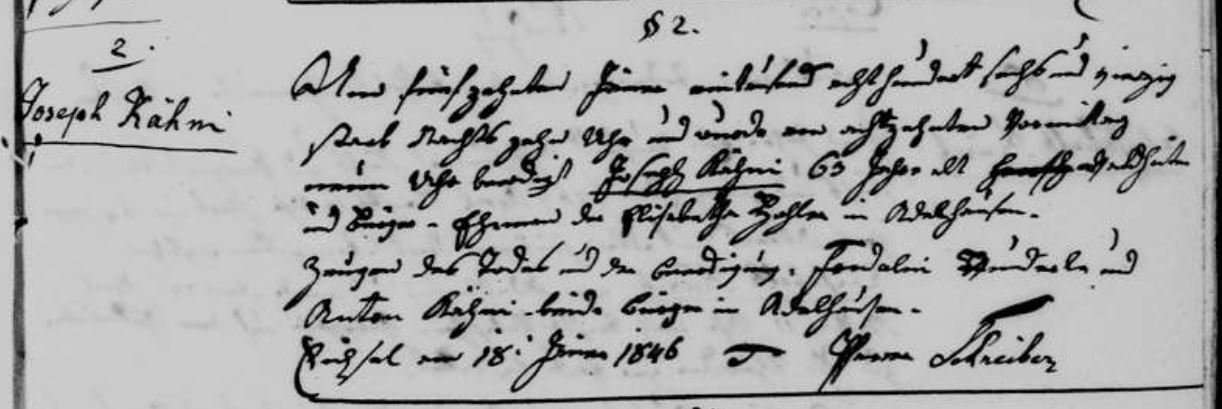 § 2.
2.
Joseph Kähni
Den fünfzehnten Jänner eintausend achthundert sechs und vierzig
starb Nachts zehn Uhr und wurde am achtzehnten Vormittag
neun Uhr beerdigt Joseph Kähni 63 Jahre alt
und Bürger - Ehemann der Elisabetha Zahler in Adelhausen.
Zeugen des Todes und der Beerdigung. Fridolin und
Anton Kähni beide Bürger in Adelhausen.
Eichsel am 18. Jänner 1846 Pfarrer Schreiber